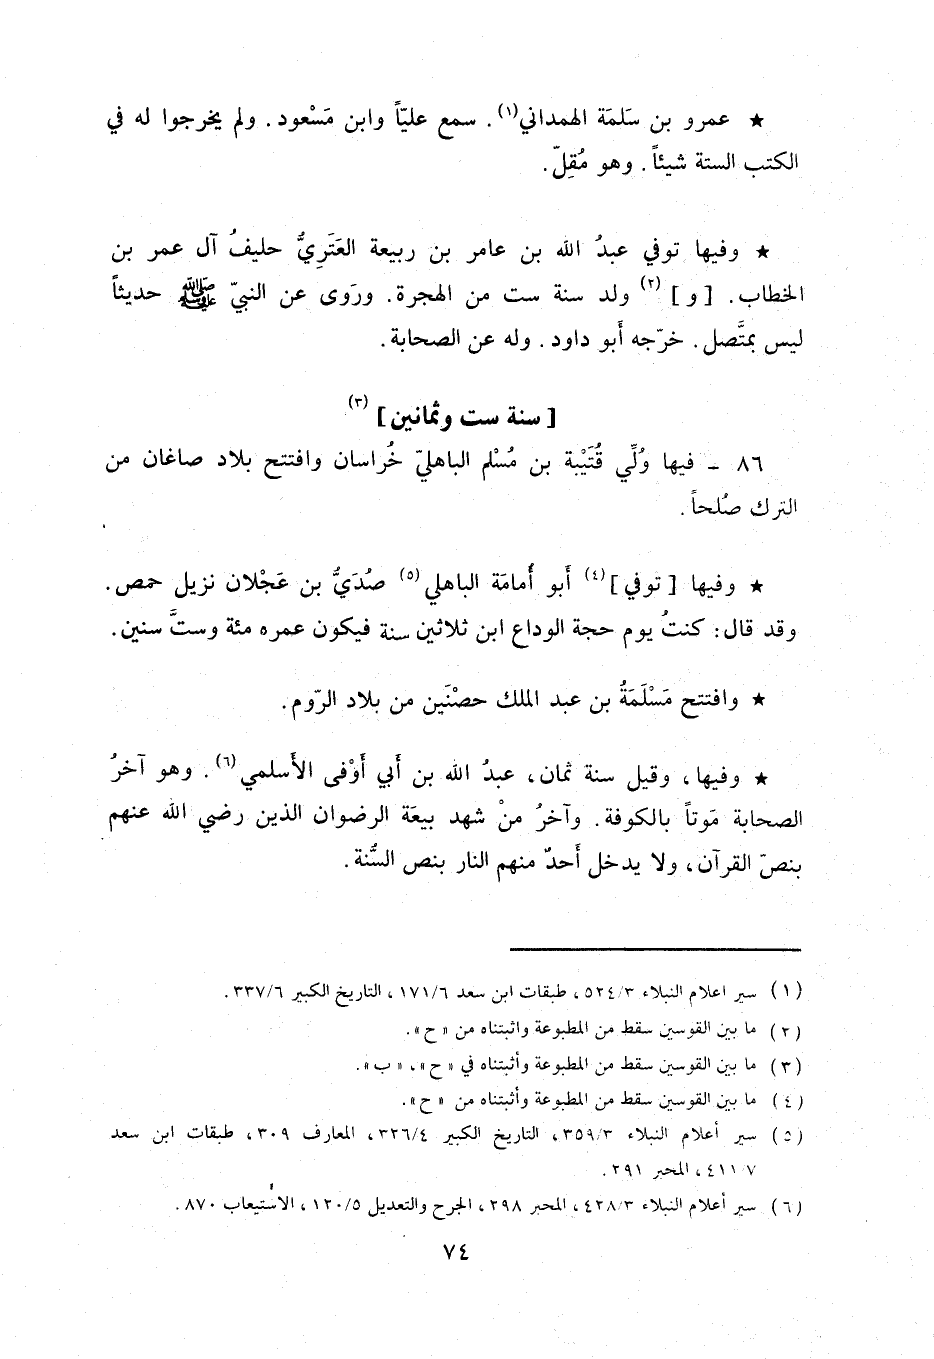 ★ عمرو بن سَلمَة الهمداني(١). سمع عليّاً وابن مَسْعود. ولم يخرجوا له في
الكتب الستة شيئاً. وهو مُقِلّ.
★ وفيها توفي عبدُ الله بن عامر بن ربيعة العَتَرِيُّ حليفُ آل عمر بن
الخطاب. [و](٢) ولد سنة ست من الهجرة. ورَوى عن النبيّ ﷺ حديثاً
ليس بمتَّصل. خرّجه أبو داود. وله عن الصحابة.
[سنة ست وثمانين](٣)
٨٦ - فيها وُلِّي قُتَيْبة بن مُسْلم الباهليّ خُراسان وافتتح بلاد صاغان من
الترك صُلحاً.
★ وفيها [توفي](٤) أبو أُمامَة الباهلي(٥) صُدَيُّ بن عَجْلان نزيل حمص.
وقد قال: كنتُ يوم حجة الوداع ابن ثلاثين سنة فيكون عمره مئة وستَّ سنين.
★ وافتتح مَسْلَمَةُ بن عبد الملك حصْنَين من بلاد الرّوم.
★ وفيها، وقيل سنة ثمان، عبدُ الله بن أبي أَوْفى الأسلمي(٦). وهو آخرُ
الصحابة مَوتاً بالكوفة. وآخرُ منْ شهد بيعَة الرضوان الذين رضي الله عنهم
بنصّ القرآن، ولا يدخل أحدٌ منهم النار بنص السُّنة.
(١) سير اعلام النبلاء ٥٢٤/٣، طبقات ابن سعد ١٧١/٦، التاريخ الكبير ٣٣٧/٦.
(٢) ما بين القوسين سقط من المطبوعة واثبتناه من «ح».
(٣) ما بين القوسين سقط من المطبوعة وأثبتناه في «ح»، «ب».
(٤) ما بين القوسين سقط من المطبوعة وأثبتناه من «ح».
(٥) سير أعلام النبلاء ٣٥٩/٣، التاريخ الكبير ٣٢٦/٤، المعارف ٣٠٩، طبقات ابن سعد
٤١١/٧، المحبر ٢٩١.
(٦) سير أعلام النبلاء ٤٢٨/٣، المحبر ٢٩٨، الجرح والتعديل ١٢٠/٥، الاستيعاب ٨٧٠.
٧٤